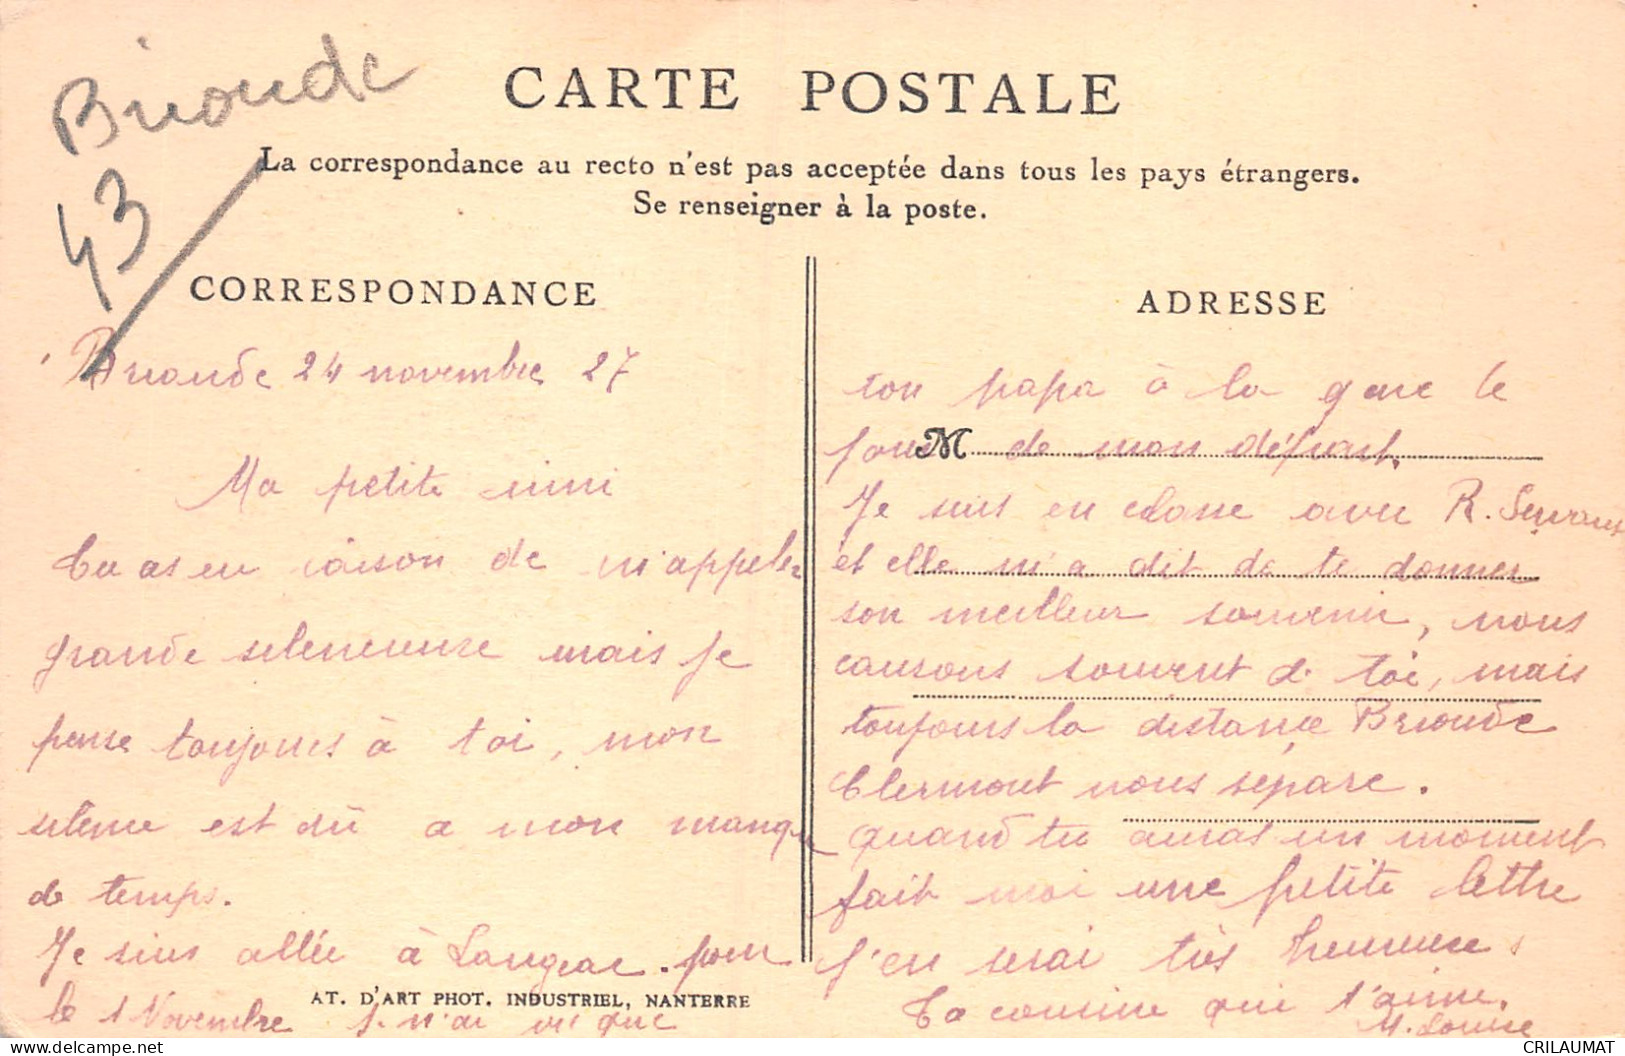 Brioude
43
CARTE POSTALE
La correspondance au recto n'est pas acceptée dans tous les pays étrangers.
Se renseigner à la poste.
CORRESPONDANCE
Brioude 24 novembre 27
Ma petite mimi
Tu as eu raison de m'appeler
grande silencieuse mais je
pense toujours à toi, mon
silence est dû a mon manque
de temps.
Je suis allée à Langeac. pour
AT. D'ART PHOT. INDUSTRIEL, NANTERRE
le 1 Novembre je n'ai vu que
ADRESSE
ton papa à la gare le
jour de mon départ.
M
Je suis en classe avec R.
et elle m'a dit de te donner
son meilleur souvenir, nous
causons souvent de toi, mais
toujours la distance Brioude
Clermont nous sépare.
quand tu auras un moment
fait moi une petite lettre
j'en serai très heureuse.
Ta cousine qui t'aime.
M. Louise
CRILAUMAT